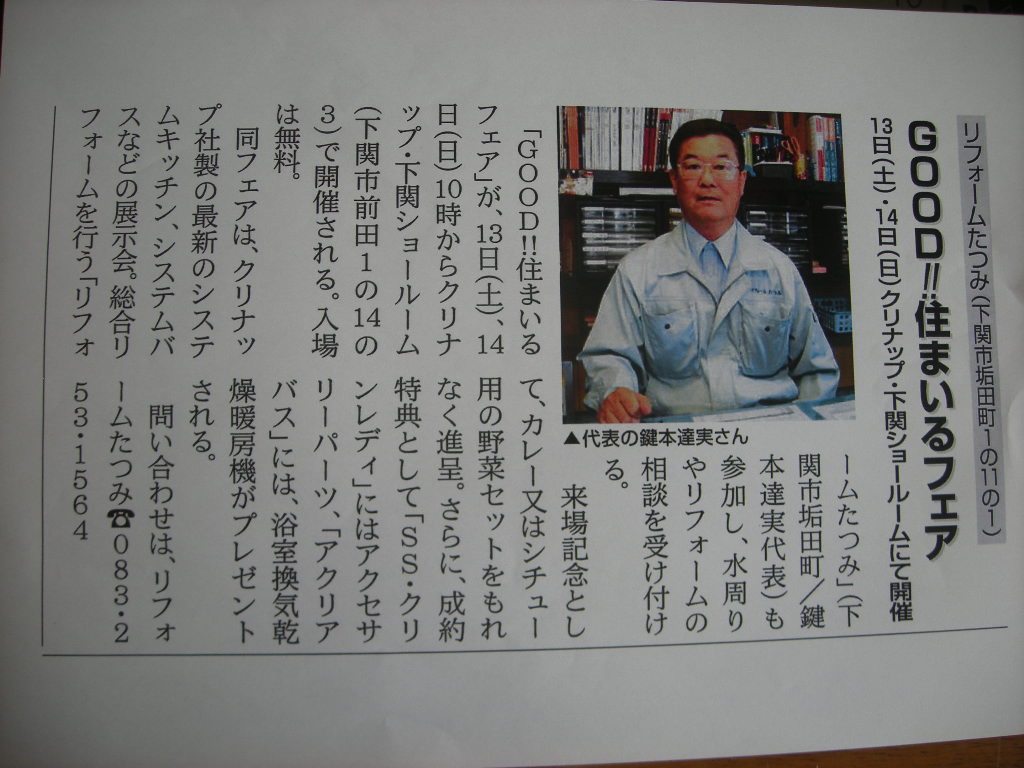 リフォームたつみ(下関市垢田町1の11の1)
GOOD!!住まいるフェア
13日(土)・14日(日)クリナップ・下関ショールームにて開催
▲代表の鍵本達実さん
「GOOD!!住まいる
フェア」が、13日(土)、14
日(日)10時からクリナ
ップ・下関ショールーム
(下関市前田1の14の
3)で開催される。入場
は無料。
同フェアは、クリナッ
プ社製の最新のシステ
ムキッチン、システムバ
スなどの展示会。総合リ
フォームを行う「リフォ
ームたつみ」(下
関市垢田町/鍵
本達実代表)も
参加し、水周り
やリフォームの
相談を受け付け
る。
来場記念とし
て、カレー又はシチュー
用の野菜セットをもれ
なく進呈。さらに、成約
特典として「SS・クリ
ンレディ」にはアクセサ
リーパーツ、「アクリア
バス」には、浴室換気乾
燥暖房機がプレゼント
される。
問い合わせは、リフォ
ームたつみ☎083・2
53・1564